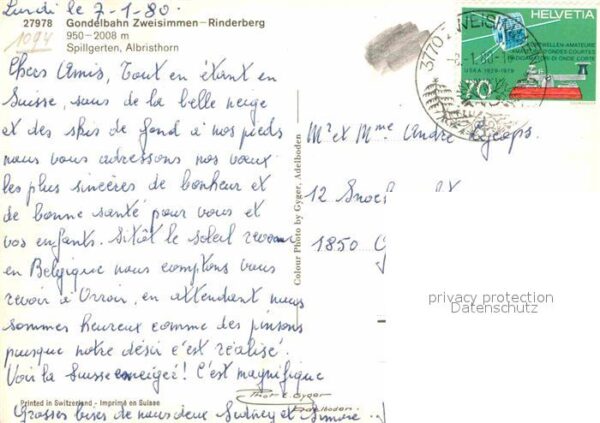 Lundi le 7-1.80.
27978 Gondelbahn Zweisimmen–Rinderberg
950–2008 m
Spillgerten, Albristhorn
1094
Chers Amis, Tout en étant en
Suisse, sous de la belle neige
et des skis de fond à nos pieds
nous vous adressons nos vœux
les plus sincères de bonheur et
de bonne santé pour vous et
vos enfants. Sitôt le soleil revenu
en Belgique nous comptons vous
revoir à Orroir, en attendant nous
sommes heureux comme des pinsons
puisque notre désir c'est réalisé.
Voir la Suisse enneigée! C'est magnifique
Printed in Switzerland - Imprimé en Suisse
Grosses bises de nous deux Sidney et Simone
Colour Photo by Gyger, Adelboden
Phot E. Gyger
Adelboden
HELVETIA
KURZWELLEN-AMATEURE
AMATEURS ONDES COURTES
RADIOAMATORI DI ONDE CORTE
USKA 1929-1979
70
3770 ZWEISIM
-8.-1.80-1
Mr et Mme André
12
1850 G
privacy protection
Datenschutz